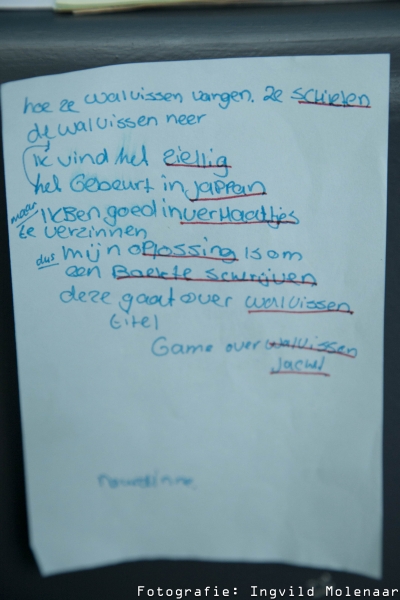 hoe ze walvissen vangen. ze schieten
de walvissen neer
ik vind het ziellig
het Gebeurt in jappan
maar ikBen goed in verHaaltjes
te verzinnen
dus mijn oplossing is om
een Boekte schrijven
deze gaat over walvissen
titel
Game over walvissen
Jacht
Fotografie: Ingvild Molenaar